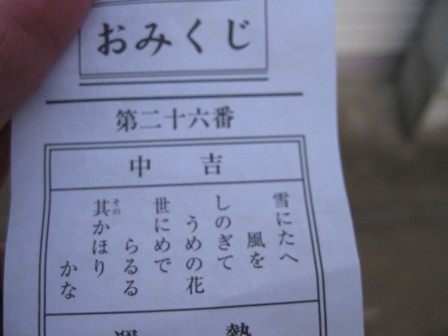 おみくじ
第二十六番
中吉
雪にたへ
風を
しのぎて
うめの花
世にめで
らるる
其かほり
その
かな
運勢